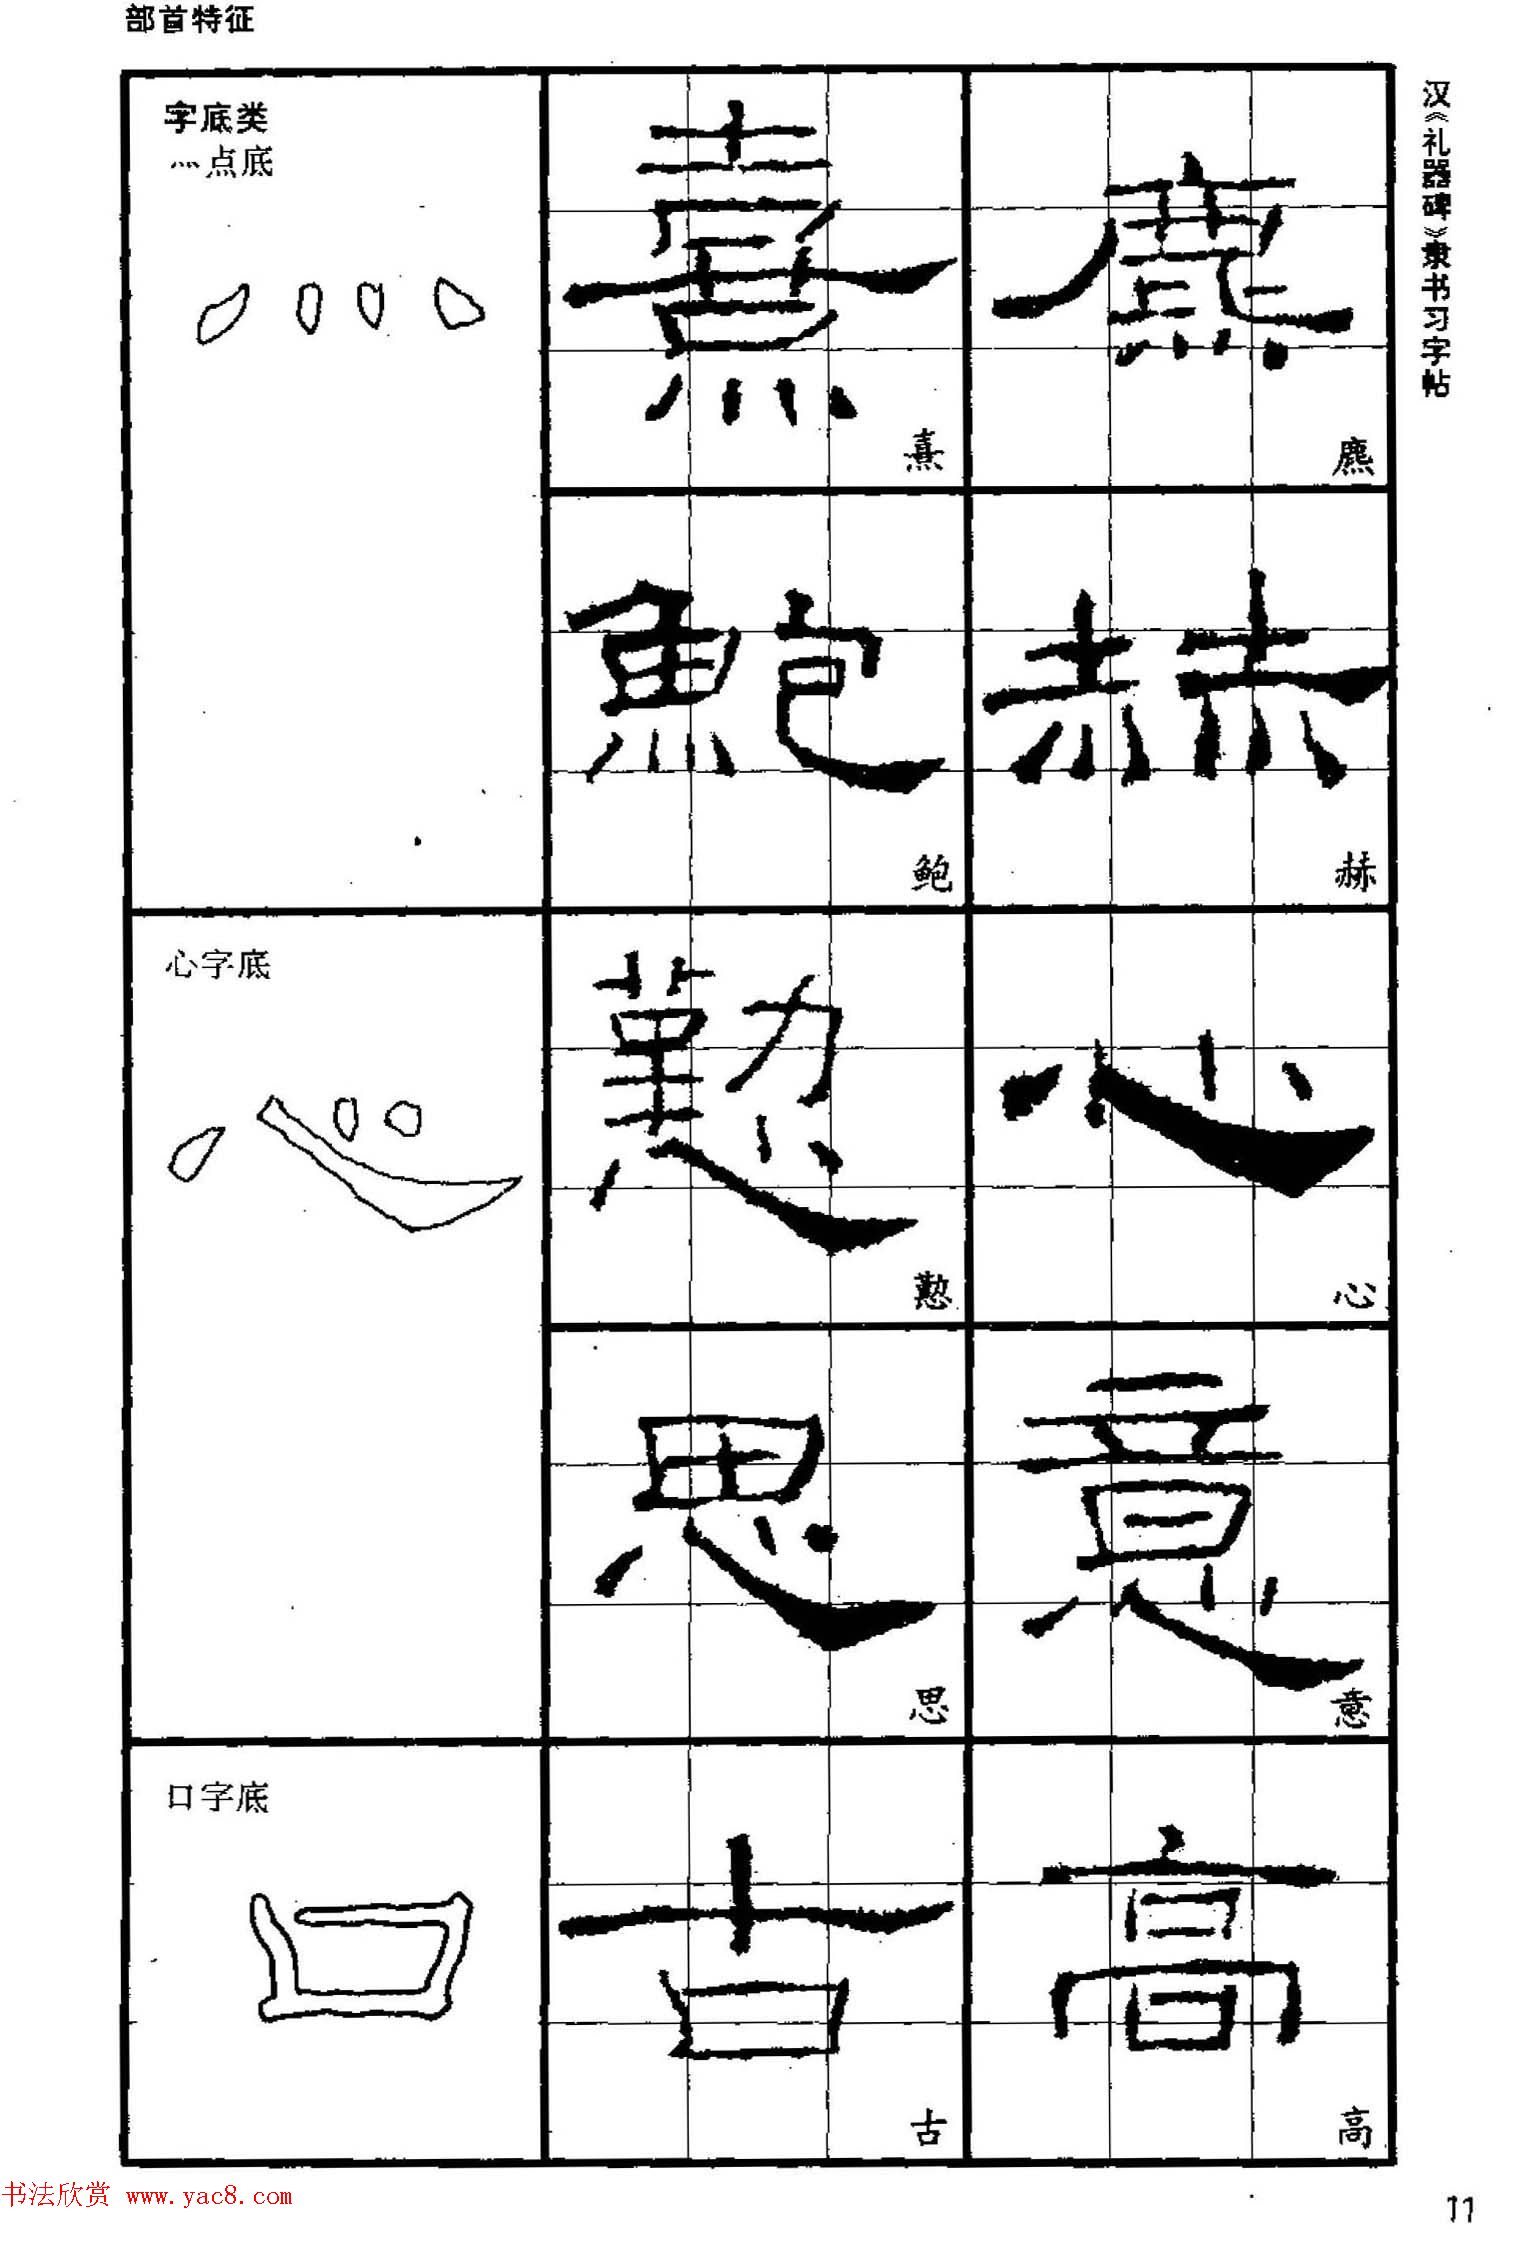 部首特征
汉《礼器碑》隶书习字帖
字底类
灬点底
熹 麃
熹 麃
鮑 赫
鲍 赫
心字底
懃 心
懃 心
思 意
思 意
口字底
古 高
古 高
书法欣赏 www.yac8.com
11